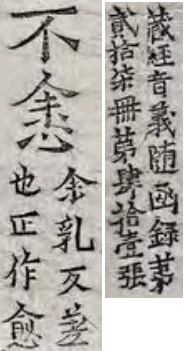 藏經音義随函錄苐
貳拾柒冊苐肆拾壹張
不悆
余乳反差
也正作愈